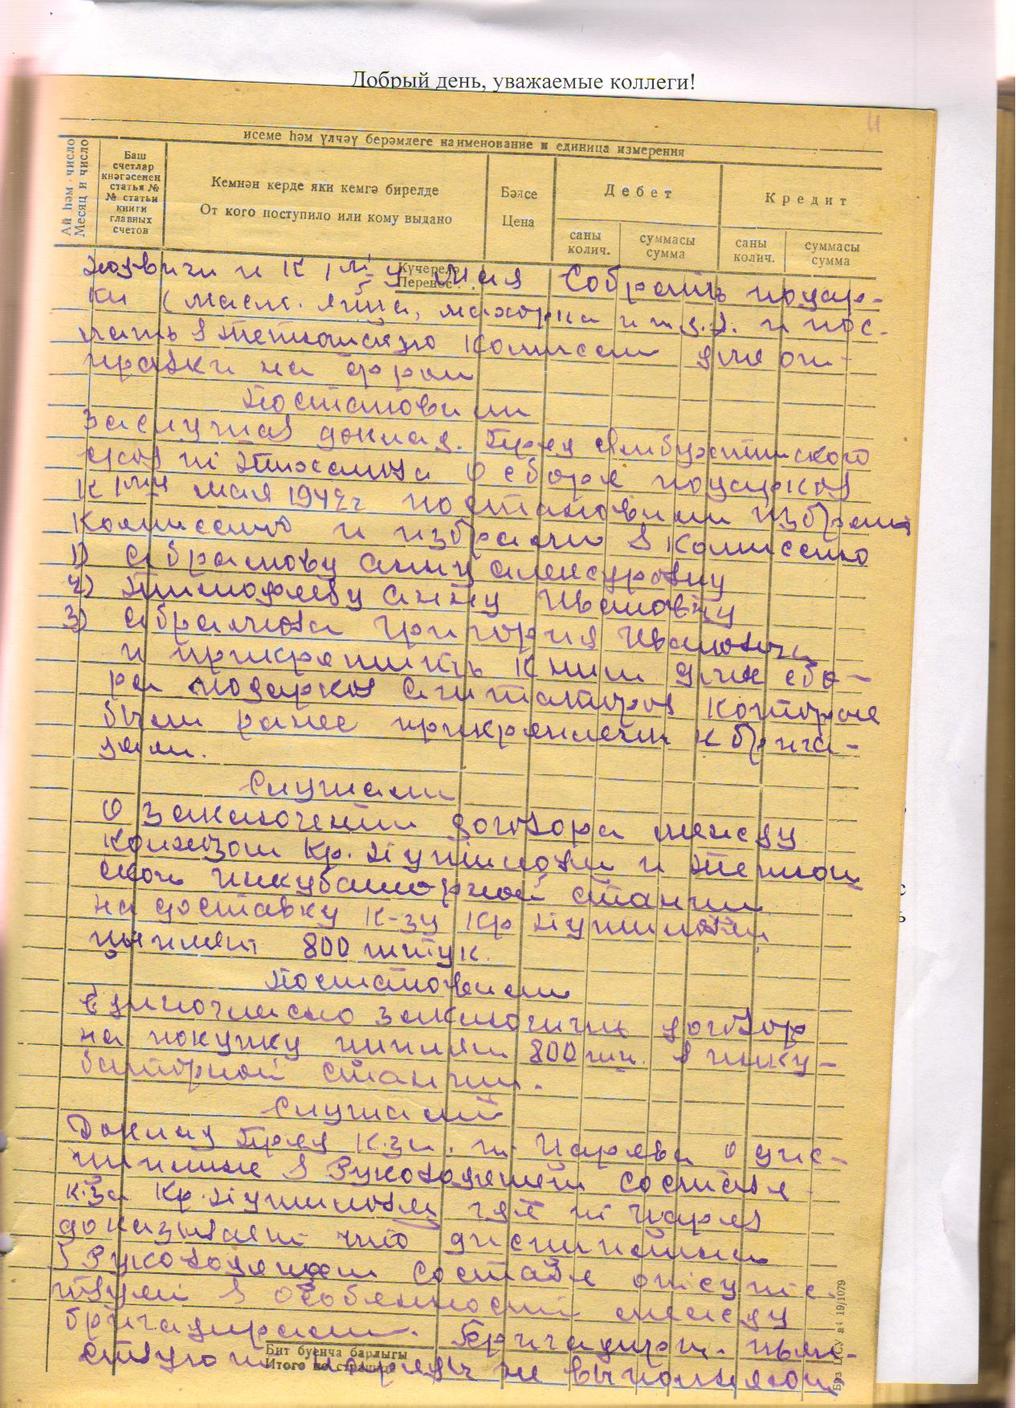 Добрый день, уважаемые коллеги!
исеме һәм үлчәү берәмлеге наименование и единица измерения
Ай һәм число
Месяц и число
Баш
счетлар
кнәгәсенең
статья №
№ статьи
книги
главных
счетов
Кемнән керде яки кемгә бирелде
От кого поступило или кому выдано
Бәясе
Цена
Дебет
Кредит
саны
колич.
суммасы
сумма
саны
колич.
суммасы
сумма
Күчерелә
Перенос
и к 1му мая Собрать подар-
ки (масл. яйца, махорка и т.д.). и пос-
лать в комиссии для от-
правки на фрон
Постановили
Заслушав доклад. Пред
т. о сборе подарков
к 1му мая 1942г постановили избрать
Комиссию и избрали в Комиссию
1) Абрамову Анну Александровну
2) Тимофееву Анну Ивановну
3) Абрамова Григория Ивановича
и прикрепить к ним для сбо-
ра подарков Агитаторов которые
были ранее прикреплены к брига-
дам.
Слушали
О заключении договора между
колхозом Кр. и
ской инкубаторной станции
на доставку к-зу Кр
цыплят 800 штук.
Постановили
Единогласно заключить договор
на покупку циплят 800 шт. в инку-
баторной станции.
Слушали
Доклад Пред к-за. т. Царева о дис-
циплине в Руководящем составе
к-за Кр. где т Царев
доказывает что дисциплина
в Руководящем составе отсутс-
твует в особенности между
бригадирами. Бригадиры. пьян-
ствуют не выполняют
Бит буенча барлыгы
Итого по странице